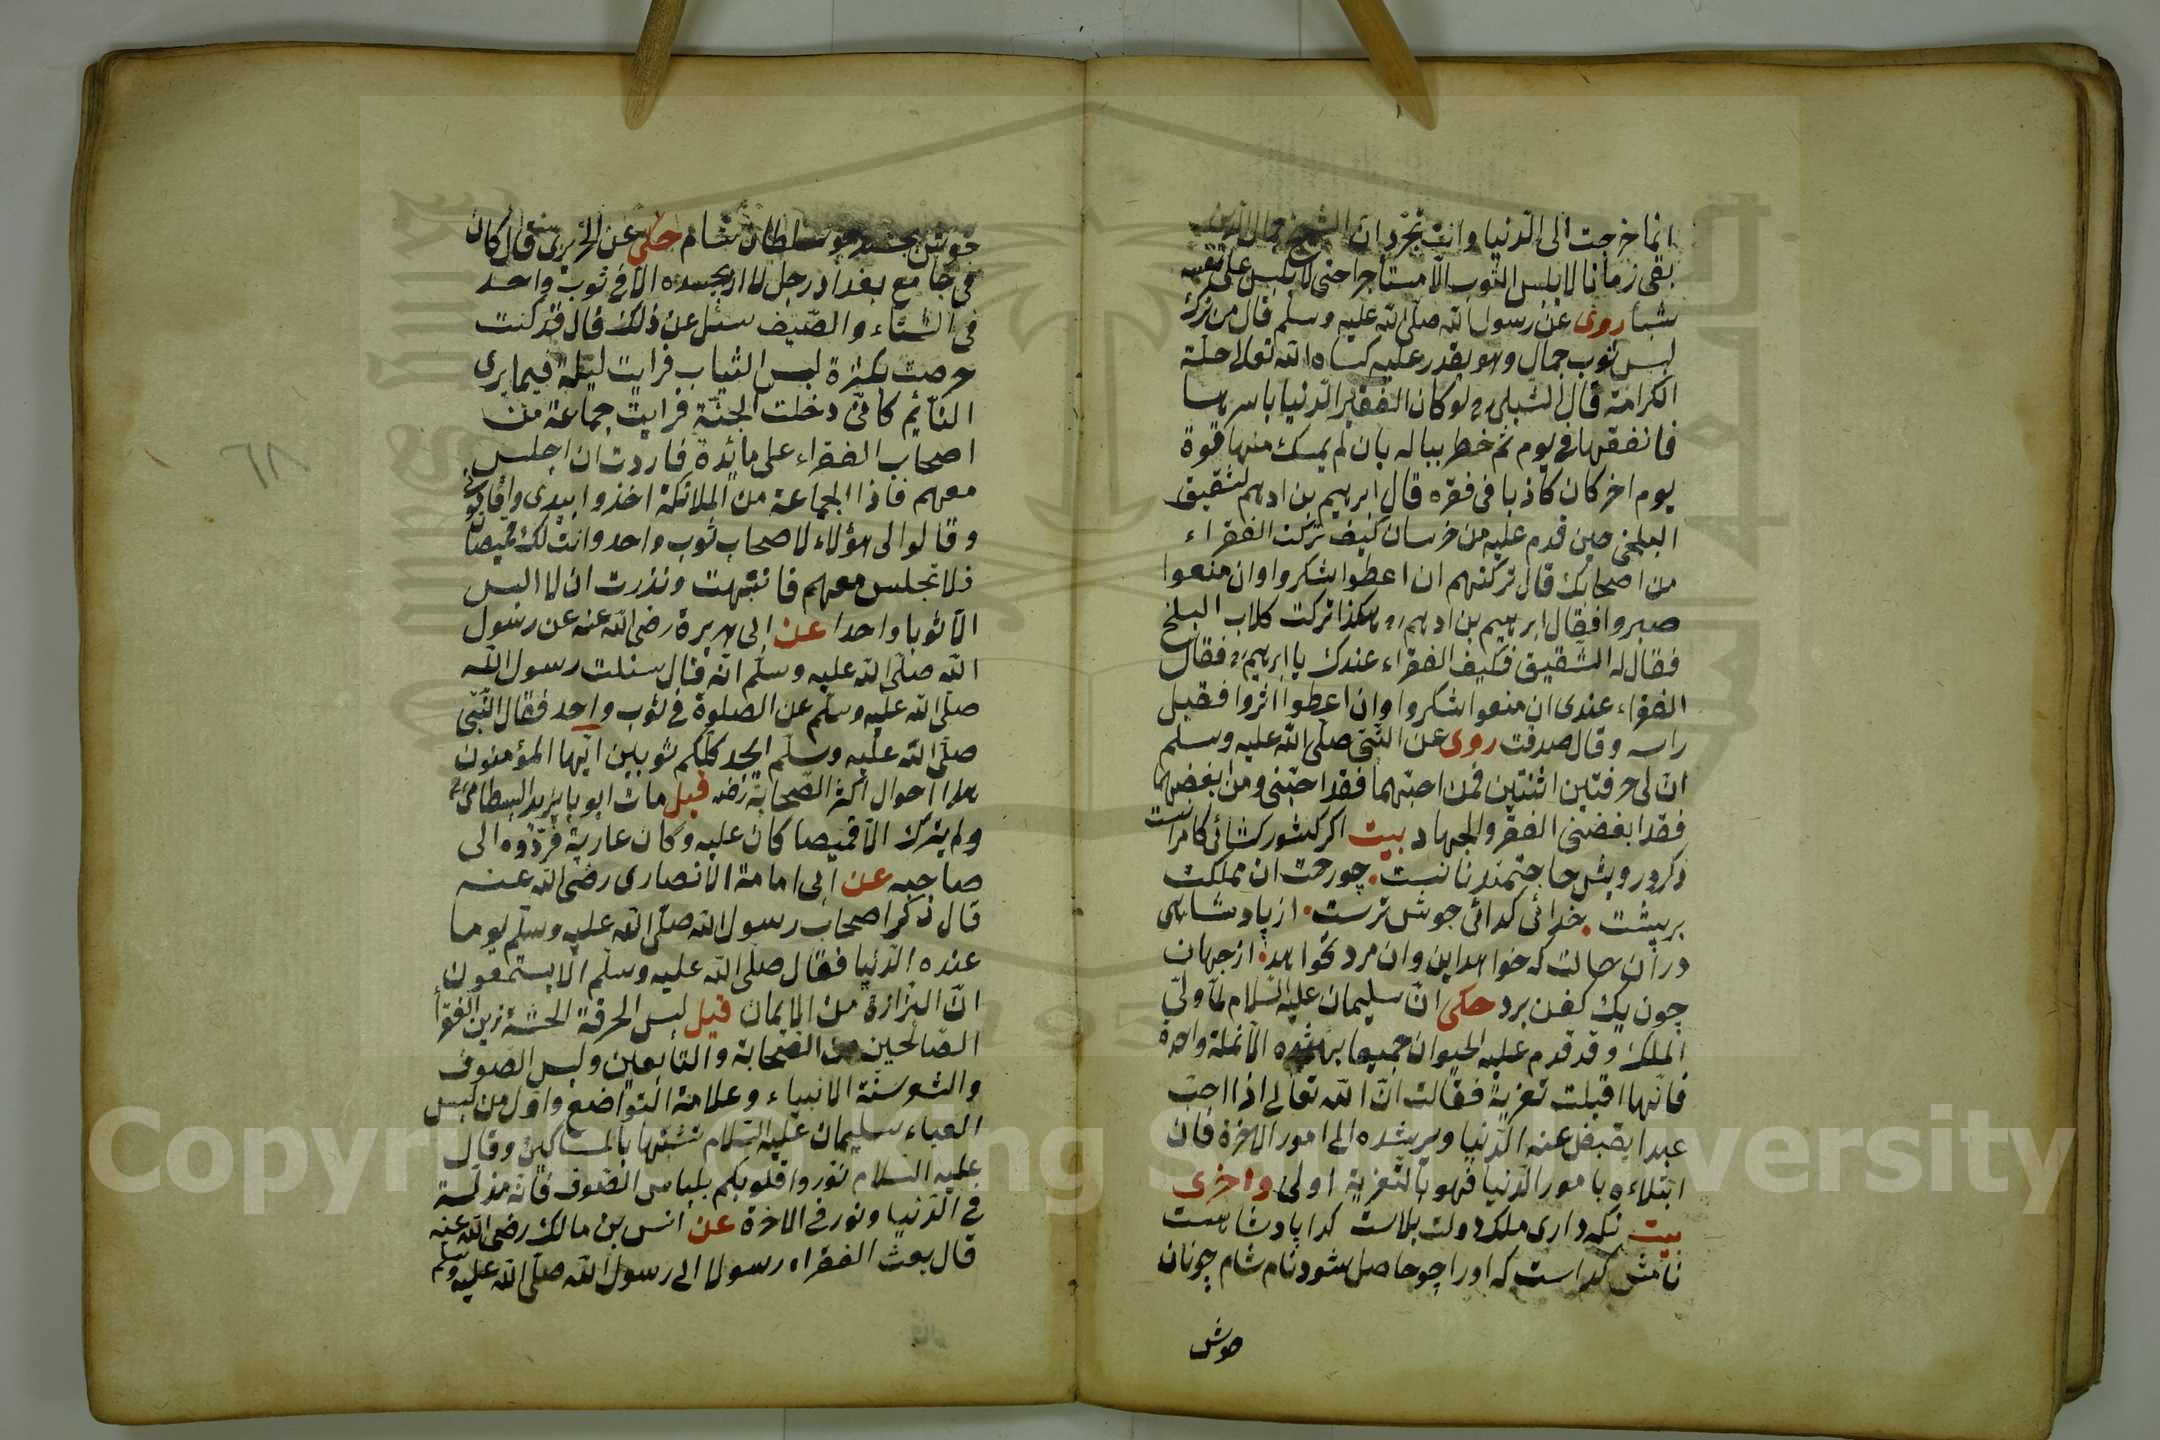 انما خرجت الى الدنيا وانت تجرد ان الشيخ
بقى زمانا لا يلبس الثوب الا مستأجرا حتى لا يلبس على نفسه
شيأ روى عن رسول الله صلى الله عليه وسلم قال من ترك
لبس ثوب جمال وهو يقدر عليه كساه الله تعالى حلة
الكرامة قال الشبلى رح لو كان الفقير الدنيا باسرها
فانفقها فى يوم ثم خطر بباله بان لم يمسك منها قوة
يوم اخر كان كاذبا فى فقره قال ابرهيم بن ادهم لشقيق
البلخى حين قدم عليه من خرسان كيف تركت الفقراء
من اصحابك قال تركتهم ان اعطوا شكروا وان منعوا
صبروا فقال ابرهيم بن ادهم رح هكذا تركت كلاب البلخ
فقال له الشقيق فكيف الفقراء عندك يا ابرهيم رح فقال
الفقراء عندى ان منعوا شكروا وان اعطوا اثروا فقبل
راسه وقال صدقت روى عن النبى صلى الله عليه وسلم
ان لى حرفتين اثنتين فمن احبهما فقد احبنى ومن ابغضهما
فقد ابغضنى الفقر والجهاد بيت اكر كشور كشائى كامراست
ذكر درويش حاجتمند نانست چو رحت ان مملكت
بريشت خدائى كدائى جوش ترست از پادشاهى
دران حالت كه خواهد اين وان مرد نخواهد از جهان
چون يك كفن برد حكى ان سليمان عليه السلام لما ولى
الملك وقد قدم عليه الحيوان جميعا الا نملة واحدة
فانها اقبلت تعزية فقالت ان الله تعالى اذا احب
عبدا يقبض عنه الدنيا ويرشده الى امور الاخرة فان
ابتلاه بامور الدنيا فهو بالتعزية اولى واخرى
بيت نكه دارى ملك دولت بلاست كدا پادشاهست
نامش كداست كه اورا چو حاصل شود نام شام چونان
خوش
خوش بخسبد چو سلطان شام حكى عن الحريرى قال كان
فى جامع بغداد رجل لا تجده الا فى ثوب واحد
فى الشتاء والصيف سئل عن ذلك قال قد كنت
حرصت بكثرة لبس الثياب فرايت ليلة فيما يرى
النائم كانى دخلت الجنة فرايت جماعة من
اصحاب الفقراء على مائدة فاردت ان اجلس
معهم فاذا الجماعة من الملائكة اخذوا بيدى واقامونى
وقالوا لى هؤلاء لاصحاب ثوب واحد وانت لك قميصان
فلا تجلس معهم فانتبهت ونذرت ان لا البس
الا ثوبا واحدا عن ابى هريرة رضى الله عنه عن رسول
الله صلى الله عليه وسلم انه قال سئلت رسول الله
صلى الله عليه وسلم عن الصلوة فى ثوب واحد فقال النبى
صلى الله عليه وسلم ايجد كلكم ثوبين ايها المؤمنون
هذا احوال اكثر الصحابة رضه قيل مات ابو يا يزيد البسطامى رح
ولم يترك الا قميصا كان عليه وكان عارية فردوه الى
صاحبه عن ابى امامة الانصارى رضى الله عنه
قال ذكر اصحاب رسول الله صلى الله عليه وسلم يوما
عنده الدنيا فقال صلى الله عليه وسلم الا يستمعون
ان البزازة من الايمان قيل لبس الخرقة الخشنة زين الفقراء
الصالحين من الصحابة والتابعين ولبس الصوف
والشعر سنة الانبياء وعلامة التواضع واول من لبس
العباء سليمان عليه السلام تشبها بالمساكين وقال
عليه السلام نوروا قلوبكم بلباس الصوف فانه مذلة
فى الدنيا ونور فى الاخرة عن انس بن مالك رضى الله عنه
قال بعث الفقراء رسولا الى رسول الله صلى الله عليه وسلم
٦٨
Copyright © King Saud University